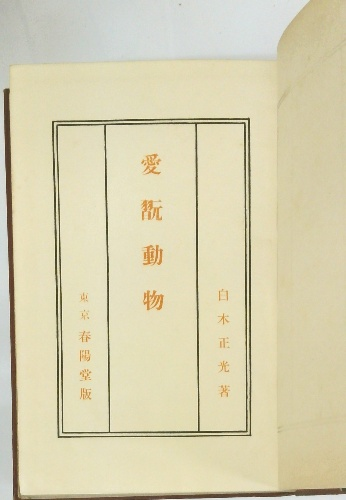 白木正光著
愛翫動物
東京 春陽堂版